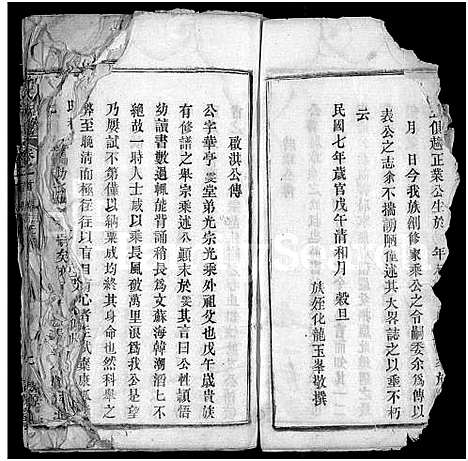 仙趣正業公生於 年
月 日今我族創修家乘公之令嗣委余爲傳以
表公之志余不揣謭陋僅述其大畧誌之以垂不朽
云
民國七年歲官戊午清和月 穀旦
族姪化龍玉峯敬撰
啟洪公傳
公字華亭 雯堂弟光宗光乘外祖父也戊午歲貴族
有修譜之舉宗乘述公顛末於雯其言曰公性穎悟
幼讀書數過輒能背誦稍長爲文蘇海韓潮滔滔不
絶故一時人士咸以乘長風破萬里浪爲我公是望
乃屢試不第僅以納粟成均終其身命也然科舉之
弊至晚清而極往往以盲目